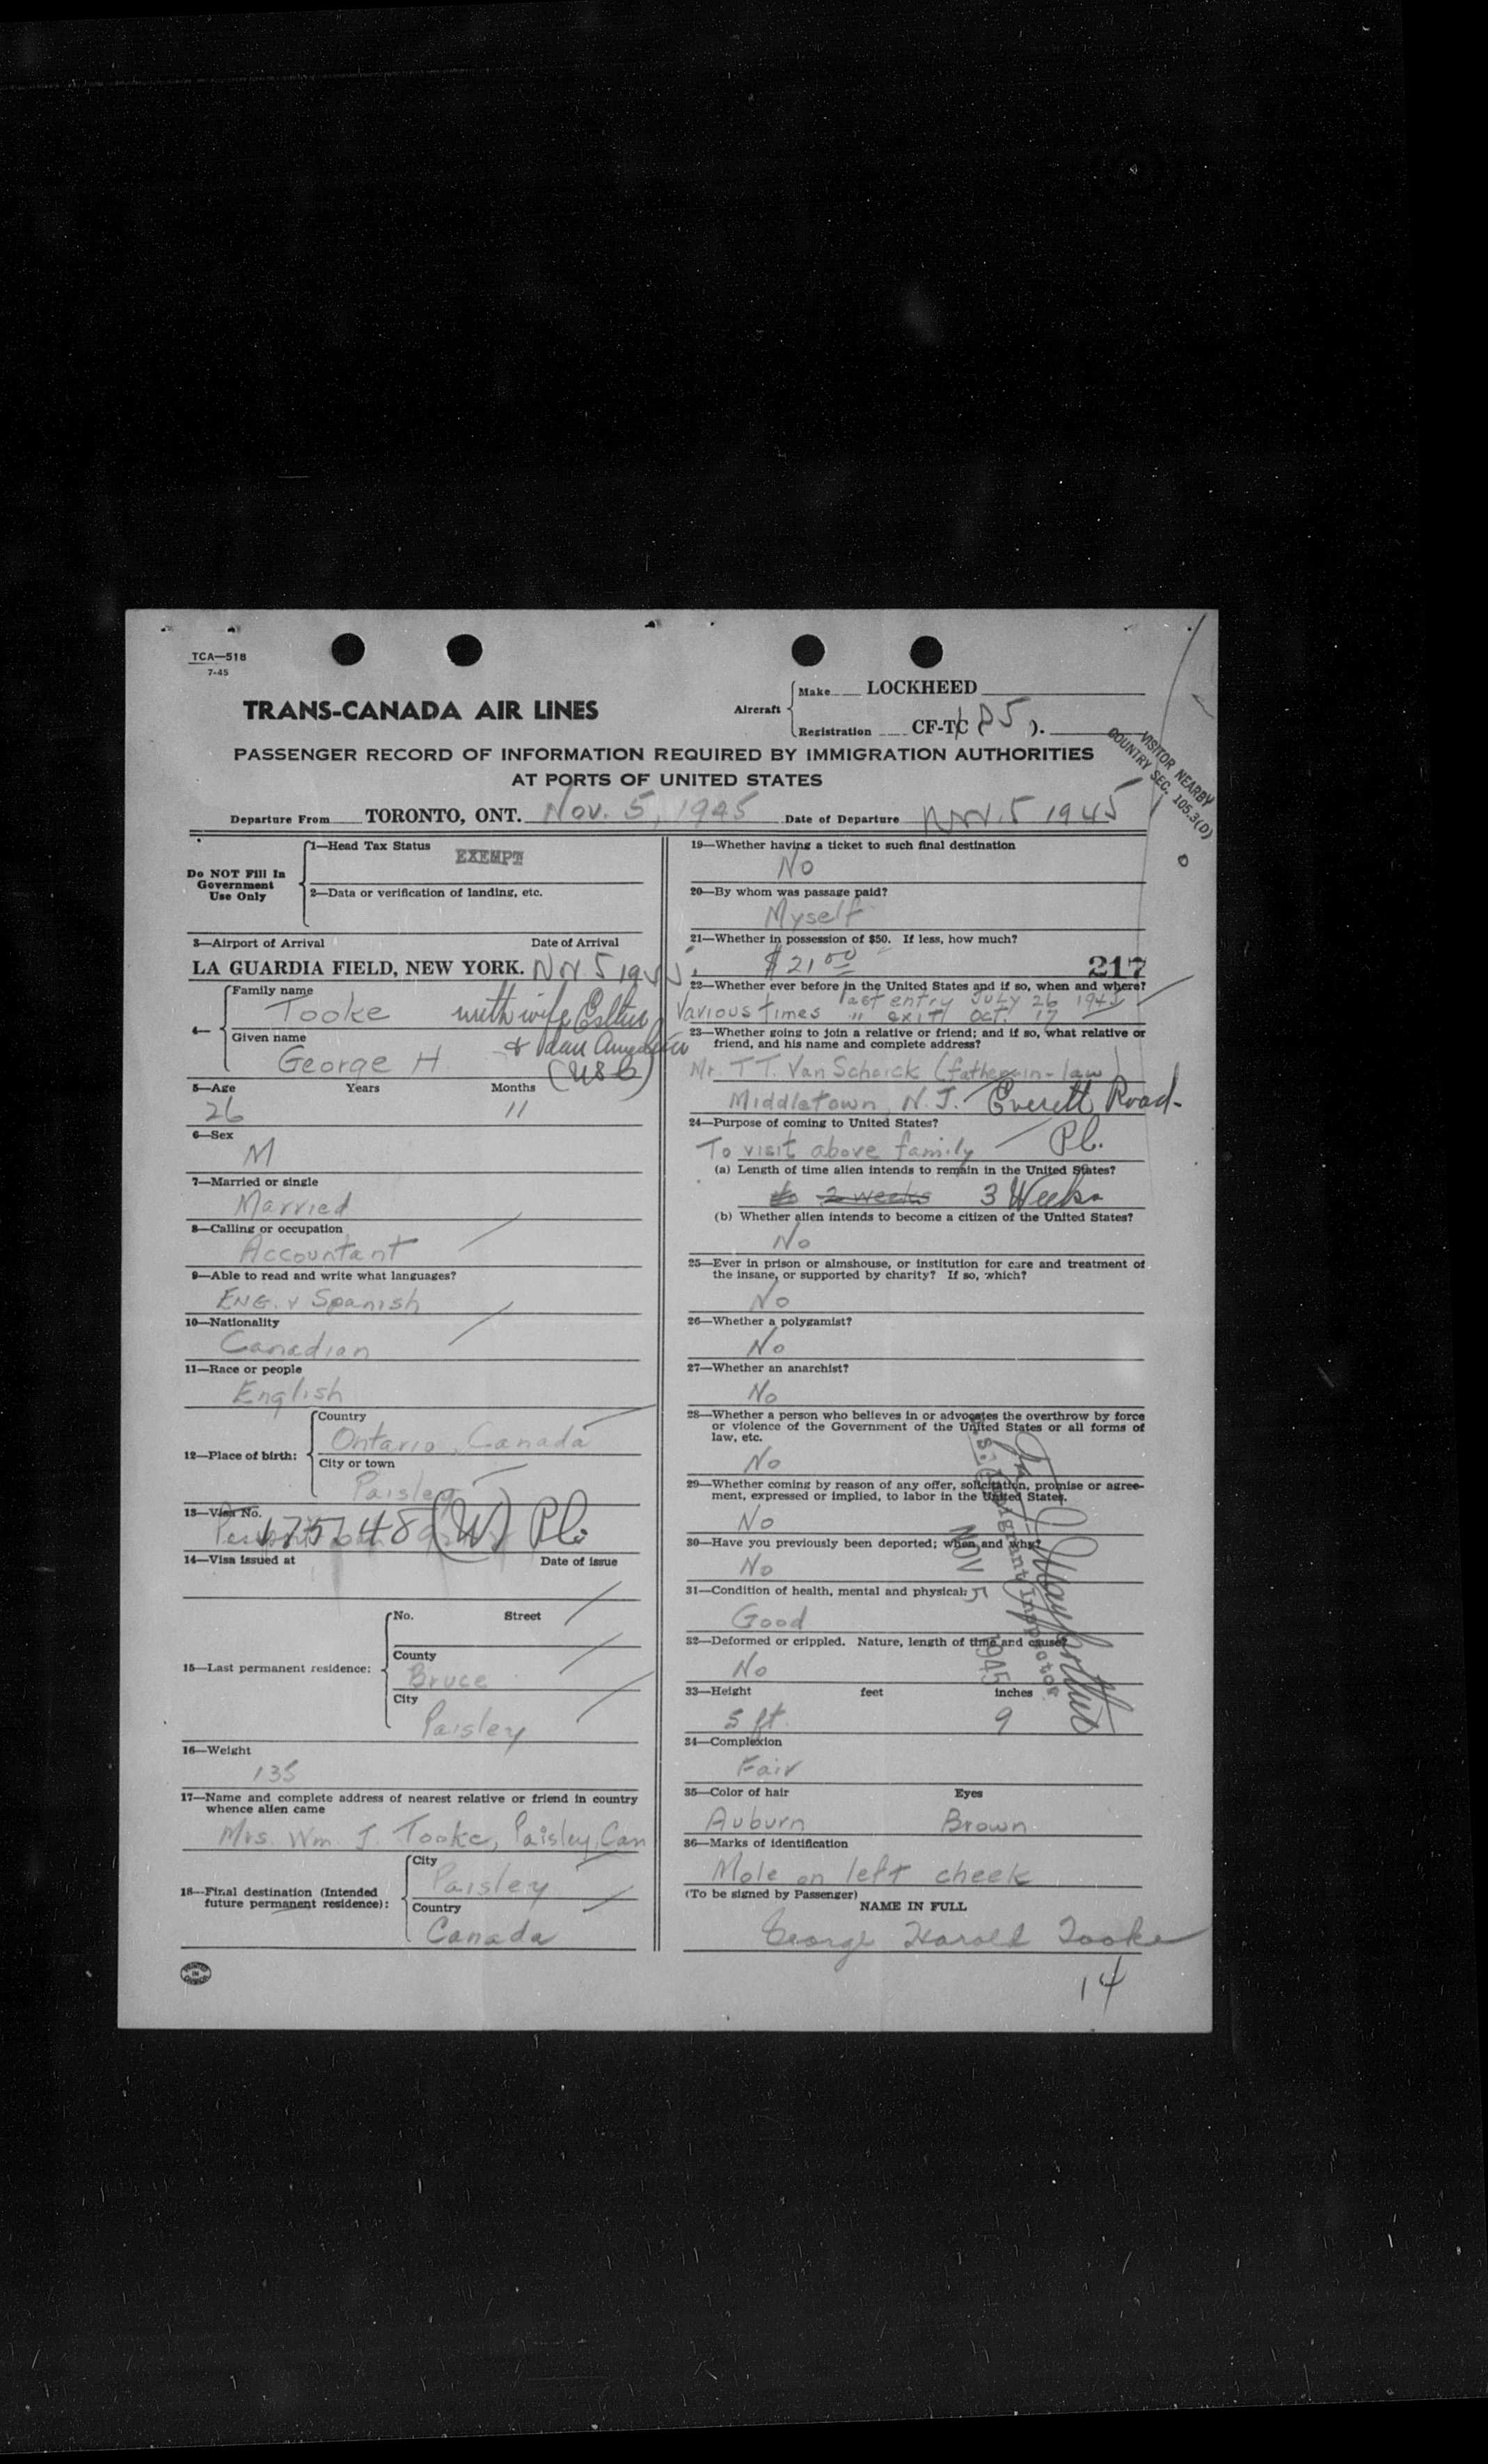 TCA—518
7-45
TRANS-CANADA AIR LINES
Aircraft
Make LOCKHEED
Registration CF-TC ( ).
PASSENGER RECORD OF INFORMATION REQUIRED BY IMMIGRATION AUTHORITIES
AT PORTS OF UNITED STATES
VISITOR NEARBY
COUNTRY SEC. 105.3(D)
Departure From TORONTO, ONT. Nov. 5, 1945 Date of Departure Nov. 5 1945
Do NOT Fill In
Government
Use Only
1—Head Tax Status
EXEMPT
2—Data or verification of landing, etc.
3—Airport of Arrival Date of Arrival
LA GUARDIA FIELD, NEW YORK. Nov 5 1945
4—
Family name
Tooke with wife Esther
Given name
George H &
(USC)
5—Age Years Months
26 11
6—Sex
M
7—Married or single
Married
8—Calling or occupation
Accountant
9—Able to read and write what languages?
ENG. & Spanish
10—Nationality
Canadian
11—Race or people
English
12—Place of birth:
Country
Ontario, Canada
City or town
Paisley
13—Visa No.
175148 (W) Pl.
14—Visa issued at Date of issue
15—Last permanent residence:
No. Street
County
Bruce
City
Paisley
16—Weight
135
17—Name and complete address of nearest relative or friend in country
whence alien came
Mrs. Wm. J. Tooke, Paisley, Can
18—Final destination (Intended
future permanent residence):
City
Paisley
Country
Canada
19—Whether having a ticket to such final destination
No
20—By whom was passage paid?
Myself
21—Whether in possession of $50. If less, how much?
$21.00 217
22—Whether ever before in the United States and if so, when and where?
last entry July 26 1945
Various times " exit Oct. 17
23—Whether going to join a relative or friend; and if so, what relative or
friend, and his name and complete address?
Mr. T T. Van Schoick (father-in-law)
Middletown, N. J. Everett Road-
24—Purpose of coming to United States?
To visit above family Pl.
(a) Length of time alien intends to remain in the United States?
2 weeks 3 Weeks
(b) Whether alien intends to become a citizen of the United States?
No
25—Ever in prison or almshouse, or institution for care and treatment of
the insane, or supported by charity? If so, which?
No
26—Whether a polygamist?
No
27—Whether an anarchist?
No
28—Whether a person who believes in or advocates the overthrow by force
or violence of the Government of the United States or all forms of
law, etc.
No
29—Whether coming by reason of any offer, solicitation, promise or agree-
ment, expressed or implied, to labor in the United States.
No
30—Have you previously been deported; when and why?
No
31—Condition of health, mental and physical:
Good
32—Deformed or crippled. Nature, length of time and cause?
No
33—Height feet inches
5 ft. 9
34—Complexion
Fair
35—Color of hair Eyes
Auburn Brown
36—Marks of identification
Mole on left cheek
(To be signed by Passenger)
NAME IN FULL
George Harold Tooke
NOV 5 1945
Immigrant Inspector
14